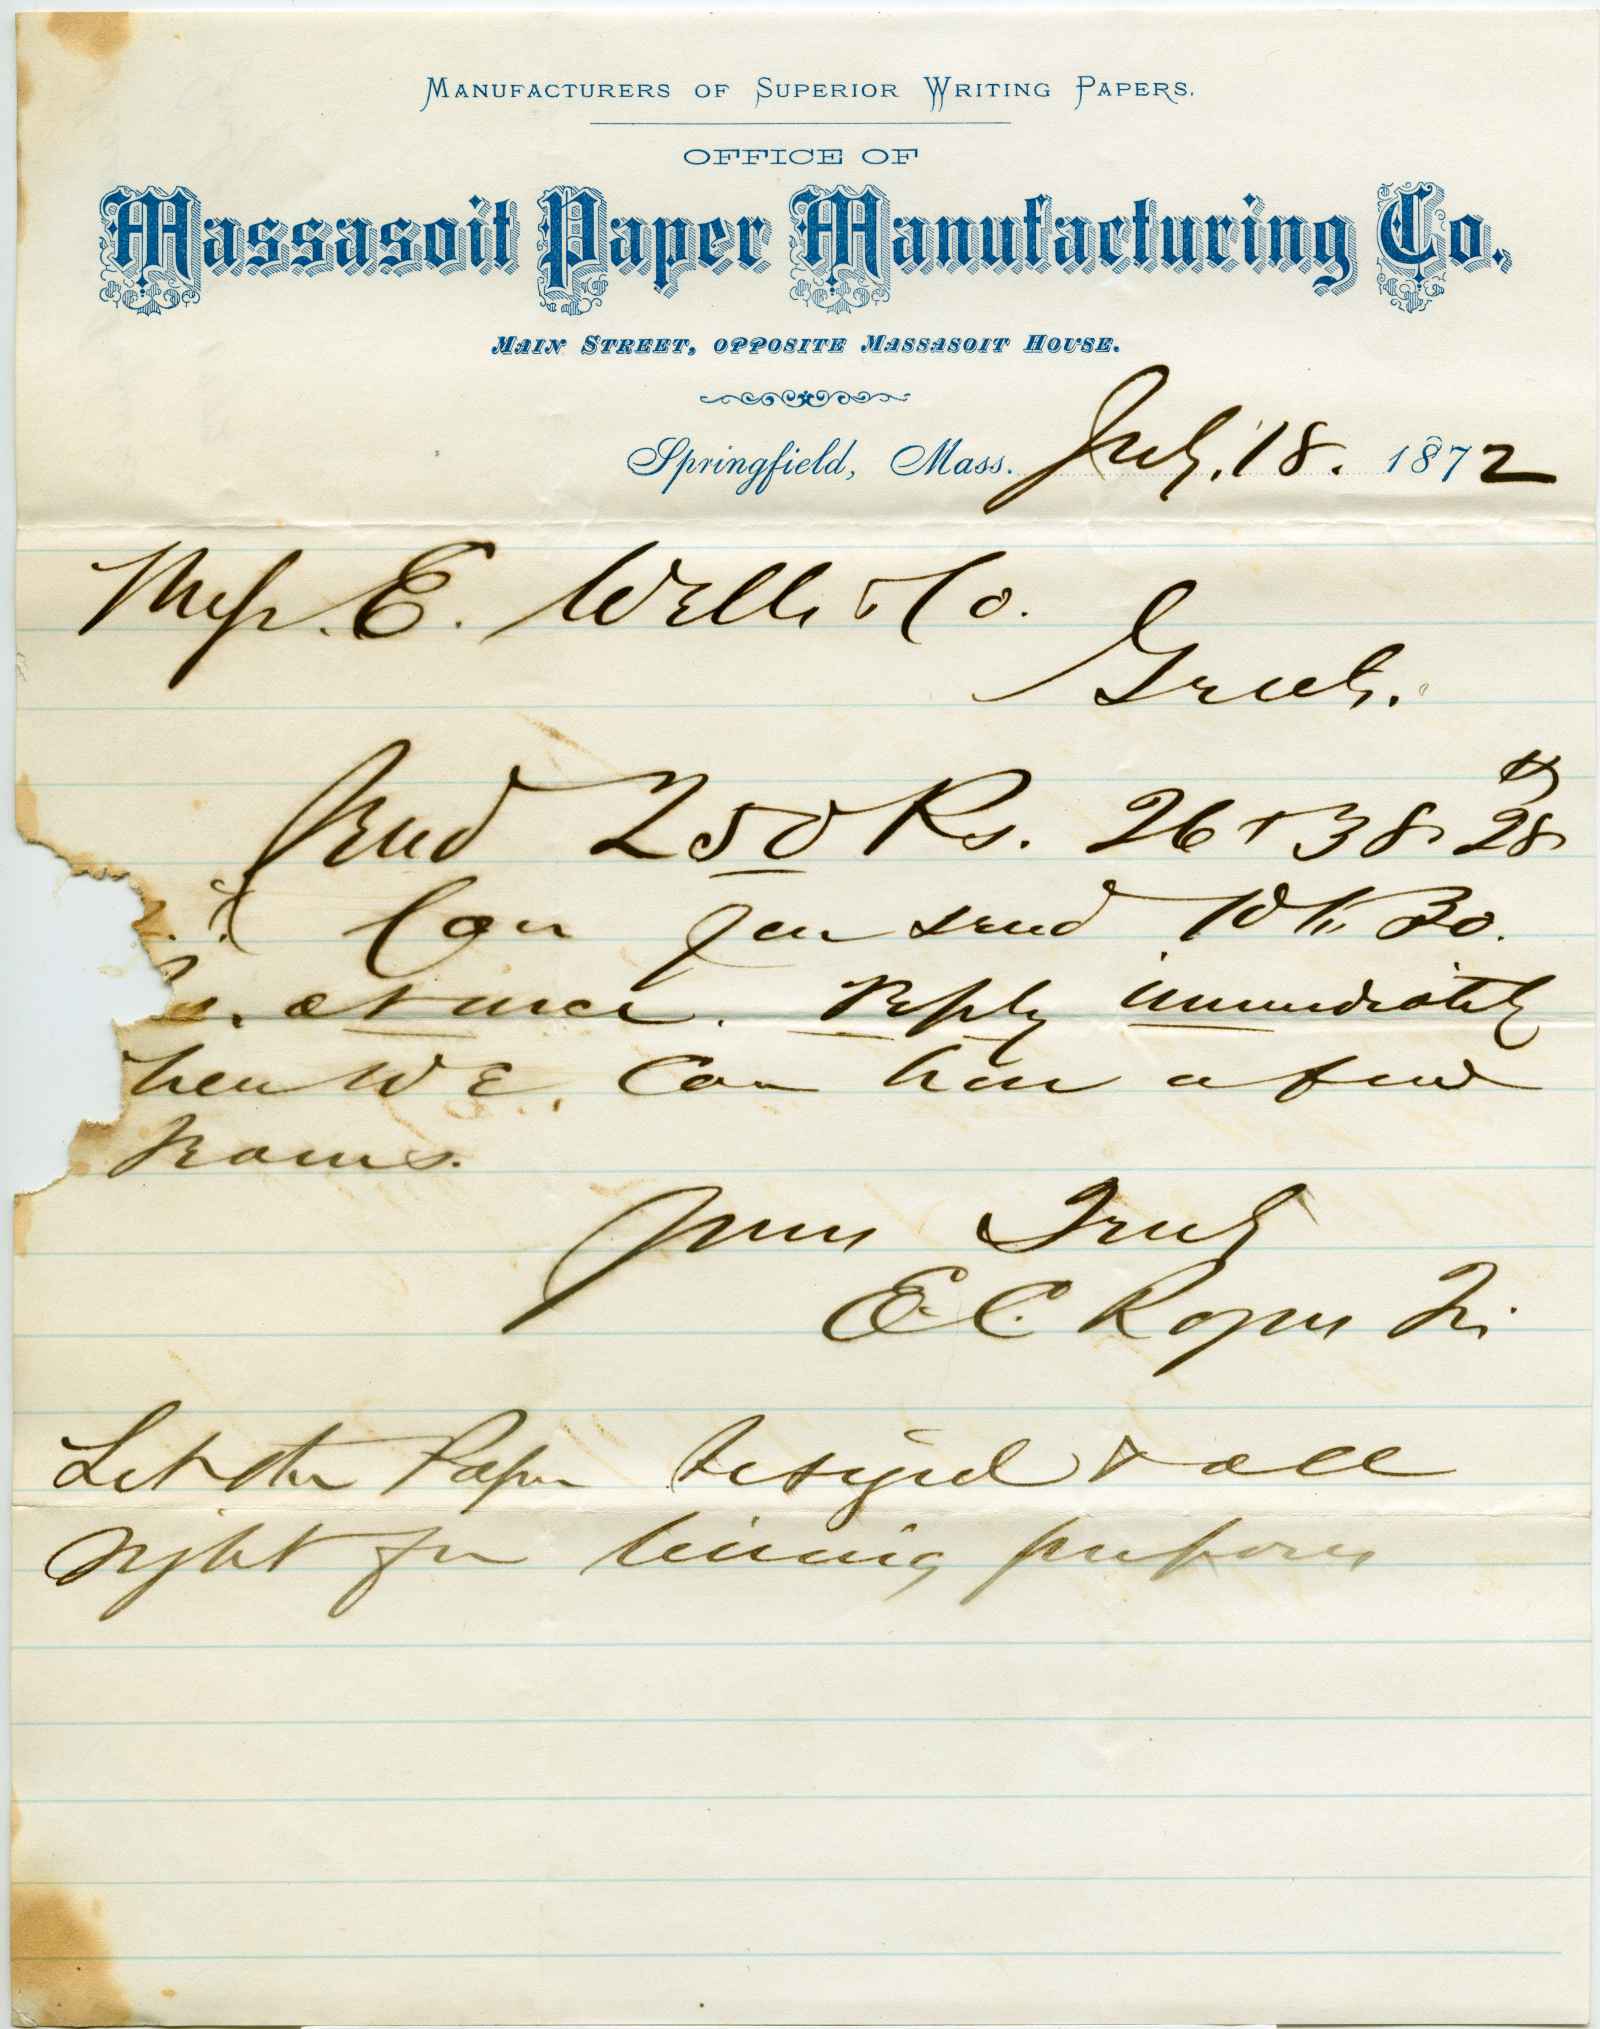 Manufacturers of Superior Writing Papers.
OFFICE OF
Massasoit Paper Manufacturing Co.,
Main Street, opposite Massasoit House.
Springfield, Mass. July. 18. 1872
Mess. E. Wells & Co.
Gents.
Send 250 Rs. 26 x 38. 28 lb
Can you send 10 to 30
at once. Reply immediately
when we can have a few
Reams.
Yours Truly
E. C. Rogers Tr.
Letter Paper Received & all
right for lining purposes